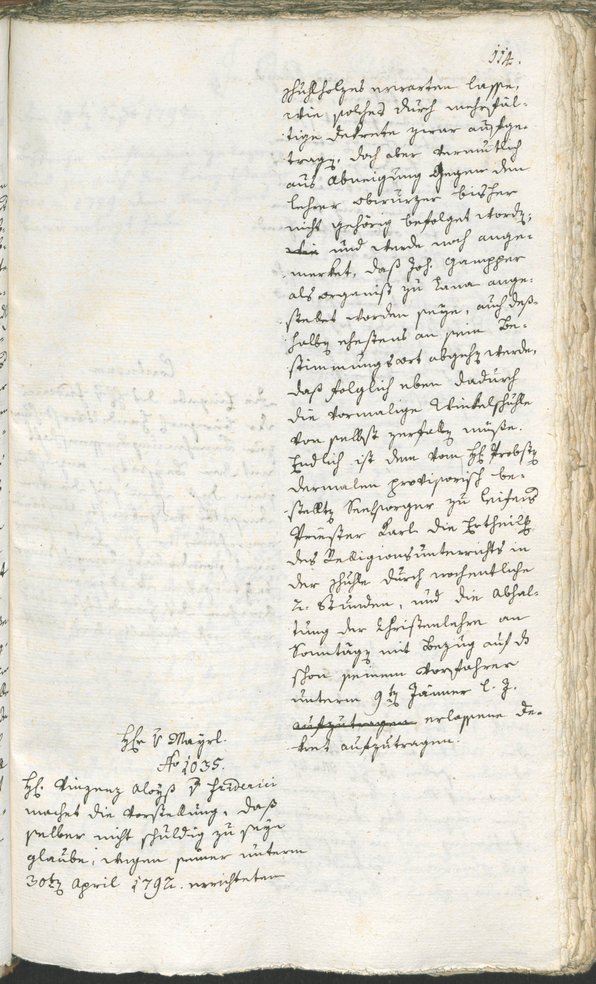 114.
schuhlholzes erwarten lasse,
wie solches durch mehrfäl-
tige Dekrete zwar aufge-
tragen, doch aber vermutlich
aus Abneigung gegen den
Lehrer Obirurzer bisher
nicht gehörig befolget worden;
und werde noch ange-
merket, daß Joh. Gampper
als Organist zu Lana ange-
stellet worden seye, auch deß-
halben ehestens an sein Be-
stimmungsort abgehen werde,
daß folglich eben dadurch
die vormalige Winkelschuhle
von selbst zerfallen müße.
Endlich ist dem vom H: Probsten
dermalen provisorisch be-
stellten Seelsorger zu Leifers
Priester Karl die Ertheilung
des Religionsunterrichts in
der Schuhle durch wochentliche
2. Stunden, und die Abhal-
tung der Christenlehre an
Sonntägen mit Bezug auf das
schon seinem Vorfahrer
unterm 9ten Jänner l. J.
aufzutragen erlassene De-
kret aufzutragen.
Hr v Mayrl.
No 1035.
H: Vinzenz Aloyß v Friderici
machet die Vorstellung, daß
selber nicht schuldig zu seyn
glaube, wegen seiner unterm
30ten April 1792. errichteten